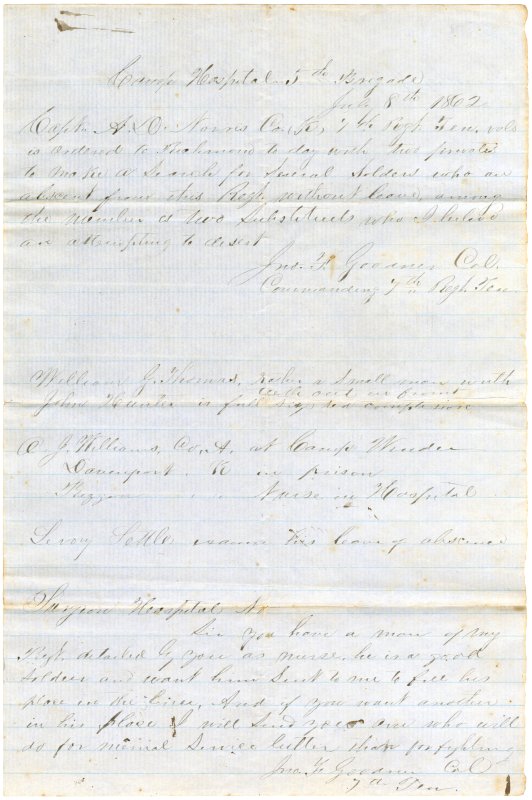 Camp Hospital 5th Brigade
July 8th 1862
Capt. A. D. Norris Co. K, 7th Regt Ten. vols
is ordered to Richmond to day with two privates
to make a Search for Several Soldiers who are
absent from this Regt. without leave, among
the number is two Substitutes who I believe
are attempting to desert
Jno. F. Goodner Col.
Commanding 7th Regt. Ten.
William G. Thomas, rather a Small man with
teeth out in front
John Hunter is full red complexion
J. Williams, Co. A. at Camp Winder
Davenport. K in prison
Nurse in Hospital
Leroy Settles examine his leave of absence
Surgeon Hospital No
Sir you have a man of my
Regt. detailed by you as nurse. he is a good
Soldier and I want him Sent to me to fill his
place in the lines, And if you want another
in his place I will Send you one who will
do for menial Service better than for fighting
Jno. F. Goodner Col
7th Ten.